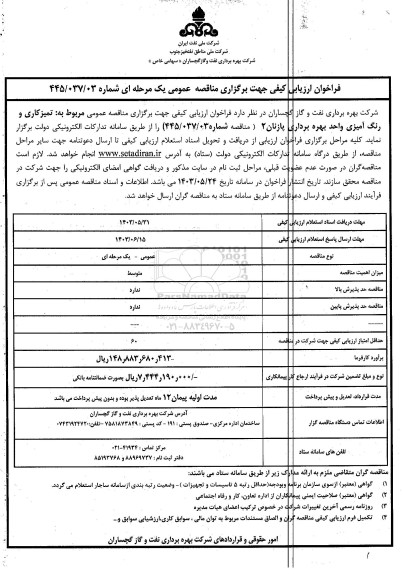 شرکت ملی نفت ایران
شرکت ملی مناطق نفتخیز جنوب
شرکت بهره برداری نفت و گاز گچساران « سهامی خاص »
فراخوان ارزیابی کیفی جهت برگزاری مناقصه عمومی یک مرحله ای شماره ۴۴۵/۰۳۷/۰۳
شرکت بهره برداری نفت و گاز گچساران در نظر دارد فراخوان ارزیابی کیفی جهت برگزاری مناقصه عمومی مربوط به: تمیزکاری و
رنگ آمیزی واحد بهره برداری پازنان۲ ( مناقصه شماره۴۴۵/۰۳۷/۰۳) را از طریق سامانه تدارکات الکترونیکی دولت برگزار
نماید. کلیه مراحل برگزاری فراخوان ارزیابی از دریافت و تحویل اسناد استعلام ارزیابی کیفی تا ارسال دعوتنامه جهت سایر مراحل
مناقصه، از طریق درگاه سامانه تدارکات الکترونیکی دولت (ستاد) به آدرس www.setadiran.ir انجام خواهد شد. لازم است
مناقصه‌گران در صورت عدم عضویت قبلی، مراحل ثبت نام در سایت مذکور و دریافت گواهی امضای الکترونیکی را جهت شرکت در
مناقصه محقق سازند. تاریخ انتشار فراخوان در سامانه تاریخ ۱۴۰۳/۰۵/۲۴ می باشد. اطلاعات و اسناد مناقصه عمومی پس از برگزاری
فرآیند ارزیابی کیفی و ارسال دعوتنامه از طریق سامانه ستاد به مناقصه گران ارسال خواهد شد.
مهلت دریافت اسناد استعلام ارزیابی کیفی ۱۴۰۳/۰۵/۳۱
مهلت ارسال پاسخ استعلام ارزیابی کیفی ۱۴۰۳/۰۶/۱۵
نوع مناقصه عمومی - یک مرحله ای
میزان اهمیت مناقصه متوسط
مناقصه حد پذیرش بالا ندارد
مناقصه حد پذیرش پایین ندارد
حداقل امتیاز ارزیابی کیفی جهت شرکت در مناقصه ۶۰
برآورد کارفرما ۱۴۸٫۸۸۳٫۶۸۰٫۴۱۳-ریال
نوع و مبلغ تضمین شرکت در فرآیند ارجاع کار پیمانکاری ۷٫۴۴۴٫۱۹۰٫۰۰۰/-ریال بصورت ضمانتنامه بانکی
مدت قرارداد، تعدیل و پیش پرداخت مدت اولیه پیمان ۱۲ ماه تعدیل پذیر بوده و بدون پیش پرداخت می باشد
آدرس شرکت بهره برداری نفت و گاز گچساران
اطلاعات تماس دستگاه مناقصه گزار ساختمان اداره مرکزی- صندوق پستی : ۱۹۱ - کد پستی : ۷۵۸۱۸۷۳۸۴۹ -تلفن:
تلفن های سامانه ستاد مرکز تماس : ۴۱۹۳۴-۰۲۱
دفتر ثبت نام : ۸۸۹۶۹۷۳۷ و ۸۵۱۹۳۷۶۸
مناقصه گران متقاضی ملزم به ارائه مدارک زیر از طریق سامانه ستاد می باشند:
۱) گواهی (معتبر) ازسوی سازمان برنامه وبودجه(حداقل رتبه ۵ تاسیسات و تجهیزات )- وضعیت رتبه بندی ازسامانه ساجار استعلام می گردد.
۲) گواهی (معتبر) صلاحیت ایمنی پیمانکاران از اداره تعاون، کار و رفاه اجتماعی
۳) روزنامه رسمی آخرین تغییرات شرکت در خصوص ترکیب اعضای هیات مدیره
۴) تکمیل فرم ارزیابی کیفی مناقصه گران و الصاق مستندات مربوط به توان مالی ، سوابق کاری،ارزشیابی سوابق و...
امور حقوقی و قراردادهای شرکت بهره برداری نفت و گاز گچساران